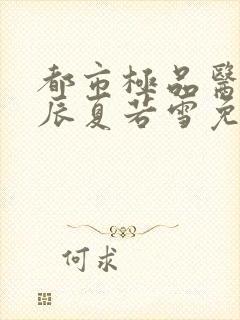 都市極品醫
辰夏若雪免
何求